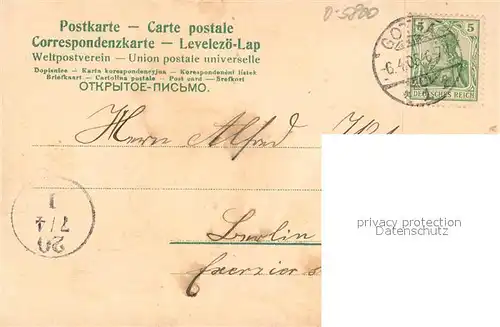 D-5800
Postkarte — Carte postale
Correspondenzkarte — Levelező-Lap
Weltpostverein — Union postale universelle
Dopisnice — Karta korespondencyjna — Korespondenční lístek
Briefkaart — Cartolina postale — Post card — Brefkort
ОТКРЫТОЕ-ПИСЬМО.
5 5
DEUTSCHES REICH
GOTHA
Herrn Alfred
20
7/4
1
Berlin
Exerzier
permanente Datensicherung
OLDTHING